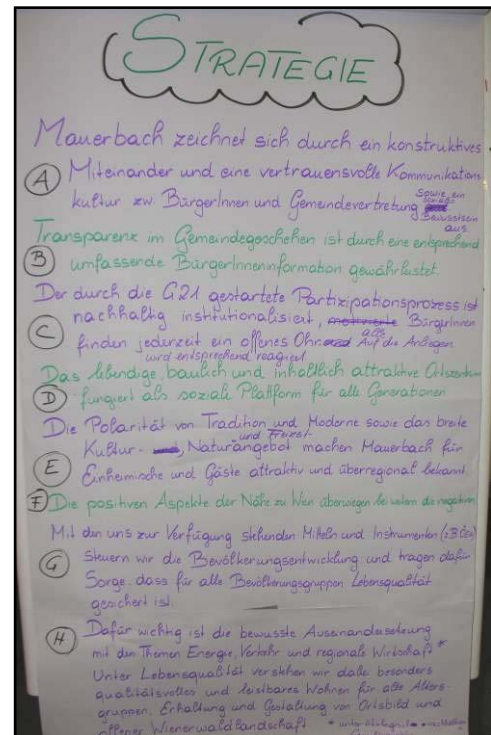 STRATEGIE
Mauerbach zeichnet sich durch ein konstruktives
A Miteinander und eine vertrauensvolle Kommunikations
kultur zw. BürgerInnen und Gemeindevertretung sowie ein
Bewusstsein
aus.
Transparenz im Gemeindegeschehen ist durch eine entsprechend
B umfassende BürgerInneninformation gewährleistet.
Der durch die G21 gestartete Partizipationsprozess ist
nachhaltig institutionalisiert, motivierte BürgerInnen
C finden jederzeit ein offenes Ohr Auf die Anliegen
wird entsprechend reagiert
Das lebendige, baulich und inhaltlich attraktive Ortszentrum
D fungiert als soziale Plattform für alle Generationen
Die Polarität von Tradition und Moderne sowie das breite
Kultur- und Freizeit- Naturangebot machen Mauerbach für
E Einheimische und Gäste attraktiv und überregional bekannt.
F Die positiven Aspekte der Nähe zu Wien überwiegen bei weitem die negativen
Mit den uns zur Verfügung stehenden Mitteln und Instrumenten
G steuern wir die Bevölkerungsentwicklung und tragen dafür
Sorge, dass für alle Bevölkerungsgruppen Lebensqualität
gesichert ist.
H Dafür wichtig ist die bewusste Auseinandersetzung
mit den Themen Energie, Verkehr und regionale Wirtschaft *
Unter Lebensqualität verstehen wir dabei besonders
qualitätsvolles und leistbares Wohnen für alle Alters-
gruppen, Erhaltung und Gestaltung von Ortsbild und
offener Wienerwaldlandschaft. * unter